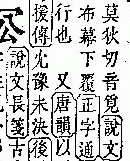 莫狄切音覓說文
布幕下覆正字通
行也 又唐韻以
援傳冘豫未決後
說文長箋古